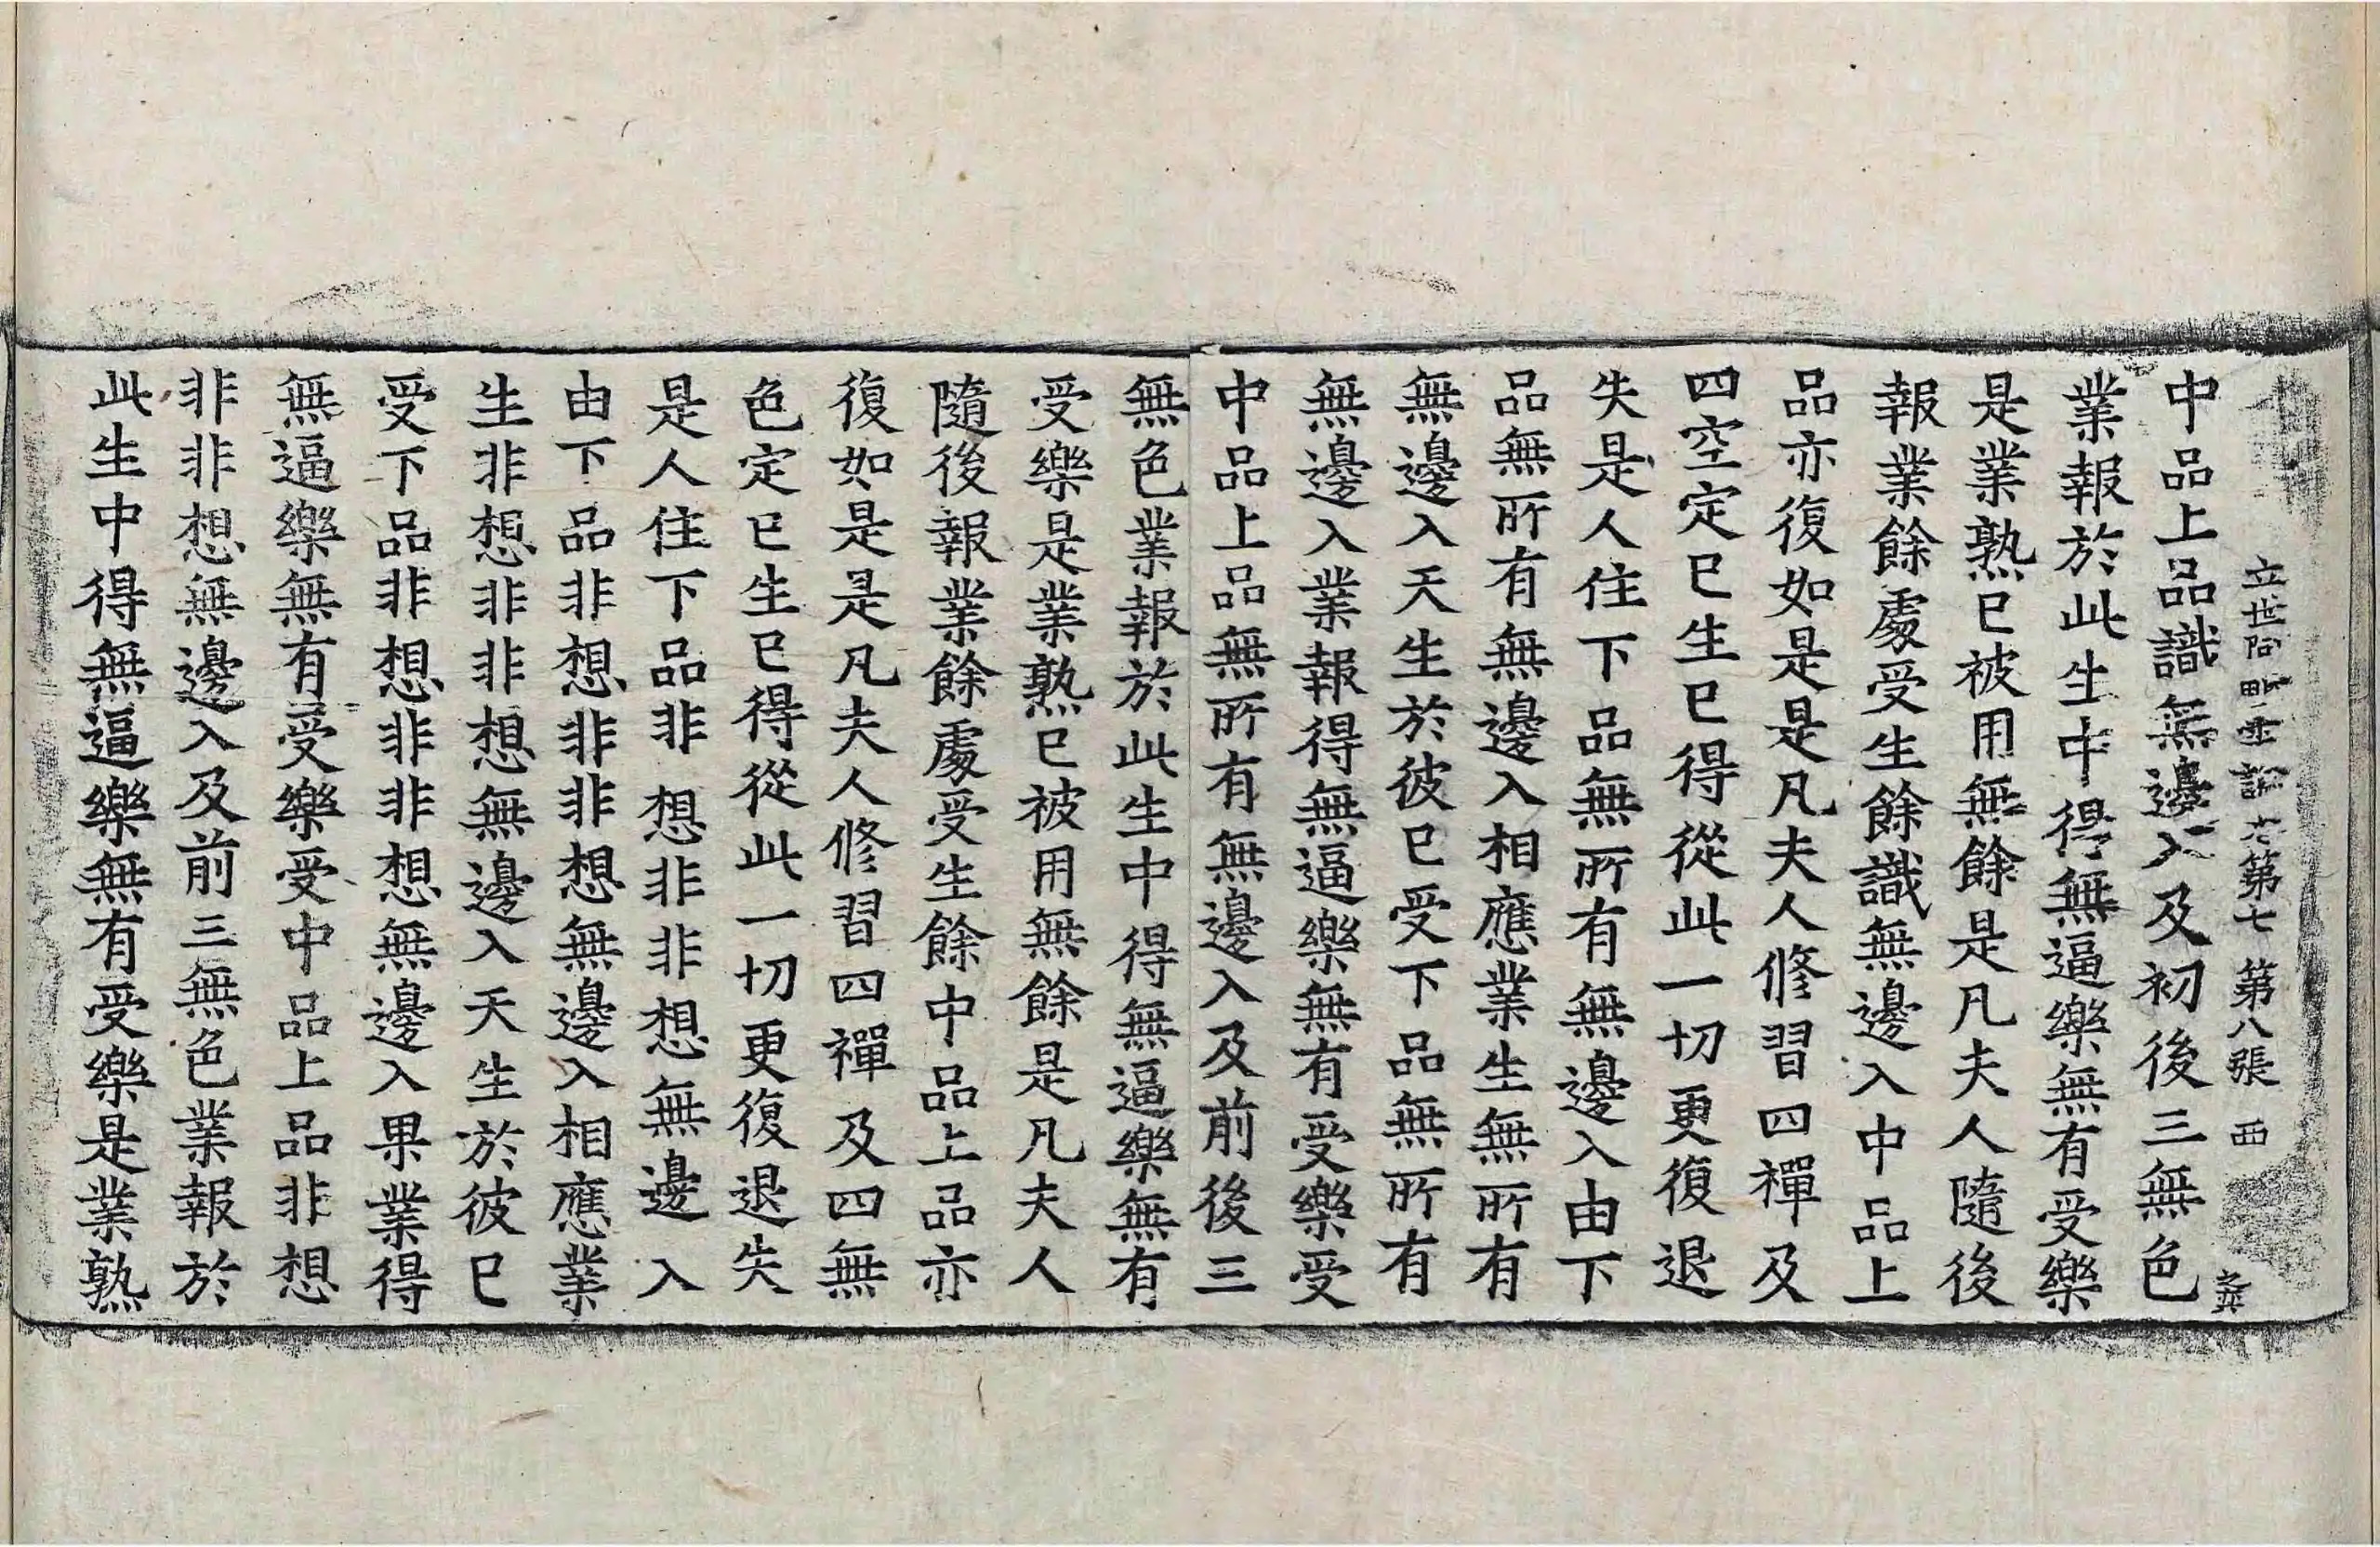 立世阿毗曇論卷第七 第八張 西
中品上品識無邊入及初後三無色
業報於此生中得無逼樂無有受樂
是業熟已被用無餘是凡夫人隨後
報業餘處受生餘識無邊入中品上
品亦復如是是凡夫人修習四禪及
四空定已生已得從此一切更復退
失是人住下品無所有無邊入由下
品無所有無邊入相應業生無所有
無邊入天生於彼已受下品無所有
無邊入業報得無逼樂無有受樂受
中品上品無所有無邊入及前後三
無色業報於此生中得無逼樂無有
受樂是業熟已被用無餘是凡夫人
隨後報業餘處受生餘中品上品亦
復如是是凡夫人修習四禪及四無
色定已生已得從此一切更復退失
是人住下品非想非非想無邊入
由下品非想非非想無邊入相應業
生非想非非想無邊入天生於彼已
受下品非想非非想無邊入果業得
無逼樂無有受樂受中品上品非想
非非想無邊入及前三無色業報於
此生中得無逼樂無有受樂是業熟